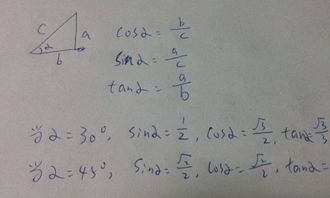 c α a b
cosα = b/c
sinα = a/c
tanα = a/b
当α=30°, sinα=1/2, cosα=√3/2, tanα=√3/3
当α=45°, sinα=√2/2, cosα=√2/2, tanα=